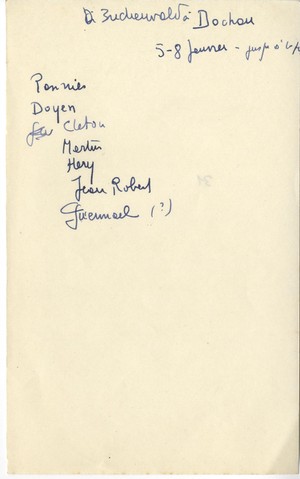 De Buchenwald à Dachau
5-8 Janvier - jusqu'à
Ponnies
Doyen
Cleton
Martin
Hery
Jean Robert
Guennael (?)